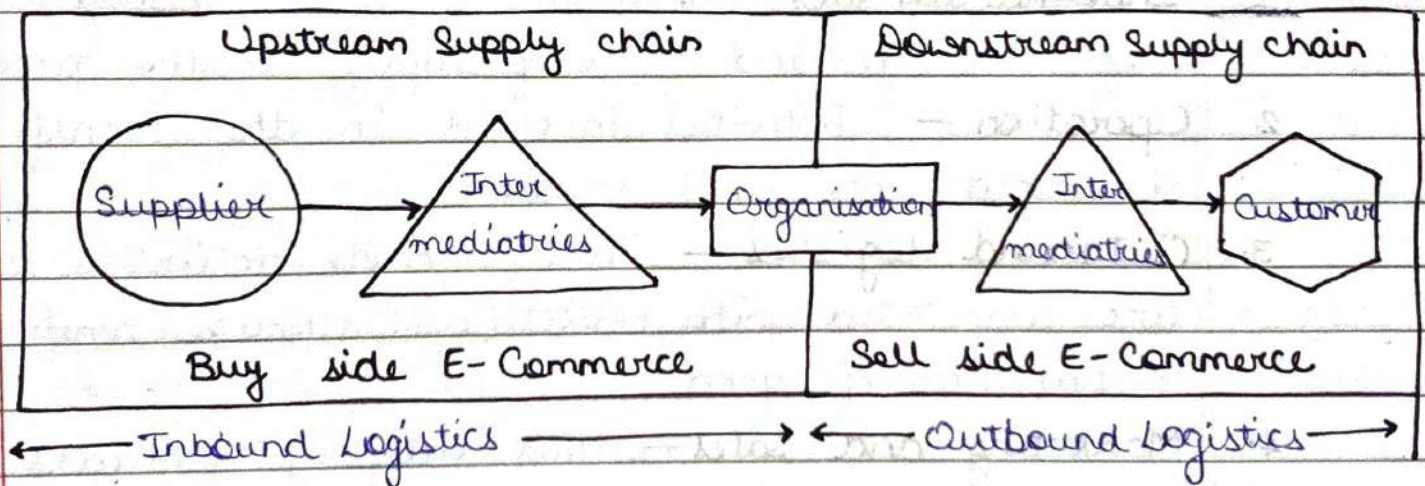 Upstream Supply chain
Downstream Supply chain
Supplier
Inter
mediatries
Organisation
Inter
mediatries
Customer
Buy side E-Commerce
Sell side E-Commerce
Inbound Logistics
Outbound Logistics